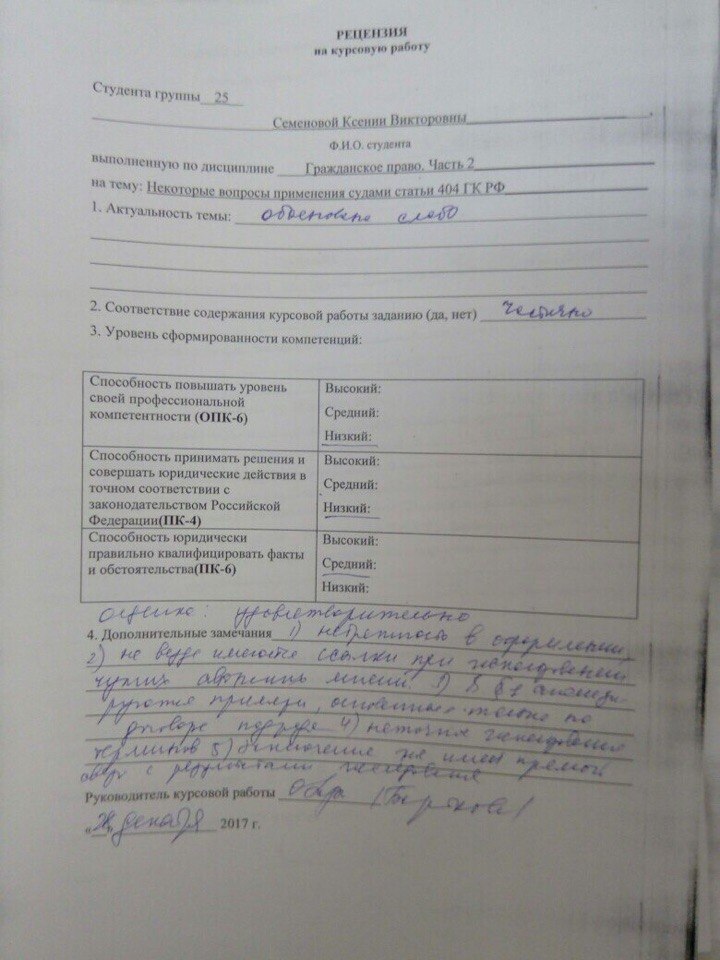 РЕЦЕНЗИЯ
на курсовую работу
Студента группы 25
Семеновой Ксении Викторовны
Ф.И.О. студента
выполненную по дисциплине Гражданское право. Часть 2
на тему: Некоторые вопросы применения судами статьи 404 ГК РФ
1. Актуальность темы: обоснована слабо
2. Соответствие содержания курсовой работы заданию (да, нет) частично
3. Уровень сформированности компетенций:
Способность повышать уровень своей профессиональной компетентности (ОПК-6)
Высокий:
Средний:
Низкий:
Способность принимать решения и совершать юридические действия в точном соответствии с законодательством Российской Федерации(ПК-4)
Высокий:
Средний:
Низкий:
Способность юридически правильно квалифицировать факты и обстоятельства(ПК-6)
Высокий:
Средний:
Низкий:
оценка: удовлетворительно
4. Дополнительные замечания 1) небрежность в оформлении
2) не везде имеются ссылки при использовании
чужих мнений 3) В §1
примеры, основанные только на
договоре подряда 4) неточное использование
терминов 5) Заключение не имеет прямой
связи с результатами исследования
Руководитель курсовой работы
„28" декабря 2017 г.